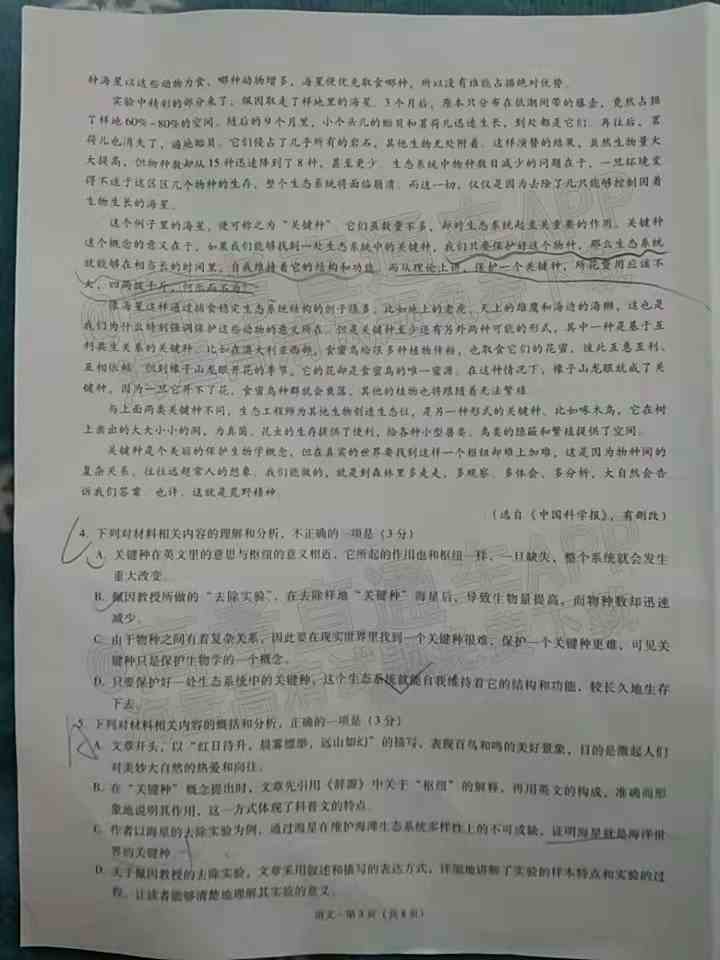 种海星以这些动物为食、哪种动物增多，海星便优先取食哪种，所以没有谁能占据绝对优势。
实验中精彩的部分来了，佩因取走了样地里的海星。3个月后，原本只分布在低潮间带的藤壶，竟然占据
了样地60%~80%的空间。随后的9个月里，小个头儿的贻贝和茗荷儿迅速生长，到处都是它们。再往后，茗
荷儿也消失了，遍地贻贝。它们侵占了几乎所有的岩石，其他生物无处附着。这样演替的结果，虽然生物量大
大提高，但物种数却从15种迅速降到了8种，甚至更少。生态系统中物种数目减少的问题在于，一旦环境变
得不适于这区区几个物种的生存，整个生态系统将面临崩溃。而这一切，仅仅是因为去除了几只能够控制固着
生物生长的海星。
这个例子里的海星，便可称之为“关键种”。它们虽数量不多，却对生态系统起至关重要的作用。关键种
这个概念的意义在于，如果我们能够找到一处生态系统中的关键种，我们只要保护好这个物种，那么生态系统
就能够在相当长的时间里，自我维持着它的结构和功能。而从理论上讲，保护一个关键种，所花费用应该不
大，四两拨千斤，何乐而不为？
像海星这样通过捕食稳定生态系统结构的例子很多，比如地上的老虎、天上的雄鹰和海边的海獭，这也是
我们为什么特别强调保护这些动物的意义所在。但是关键种至少还有另外两种可能的形式，其中一种是基于互
利共生关系的关键种。比如在澳大利亚西顿，食蜜鸟给很多种植物传粉，也取食它们的花蜜，彼此互惠互利、
互相依赖。但到橡子山龙眼开花的季节，它的花却是食蜜鸟的唯一蜜源。在这种情况下，橡子山龙眼就成了关
键种，因为一旦它开不了花，食蜜鸟种群就会衰落，其他的植物也将跟随着无法繁殖。
与上面两类关键种不同，生态工程师为其他生物创造生态位，是另一种形式的关键种。比如啄木鸟，它在树
上凿出的大大小小的洞，为真菌、昆虫的生存提供了便利，给各种小型兽类、鸟类的隐蔽和繁殖提供了空间。
关键种是个美丽的保护生物学概念，但在真实的世界要找到这样一个枢纽却难上加难，这是因为物种间的
复杂关系，往往远超常人的想象。我们能做的，就是到森林里多走走，多观察、多体会、多分析，大自然会告
诉我们答案。也许，这就是荒野精神。
（选自《中国科学报》，有删改）
4. 下列对材料相关内容的理解和分析，不正确的一项是（3分）
A. 关键种在英文里的意思与枢纽的意义相近，它所起的作用也和枢纽一样，一旦缺失，整个系统就会发生
重大改变。
B. 佩因教授所做的“去除实验”，在去除样地“关键种”海星后，导致生物量提高，而物种数却迅速
减少。
C. 由于物种之间有着复杂关系，因此要在现实世界里找到一个关键种很难，保护一个关键种更难，可见关
键种只是保护生物学的一个概念。
D. 只要保护好一处生态系统中的关键种，这个生态系统就能自我维持着它的结构和功能，较长久地生存
下去。
5. 下列对材料相关内容的概括和分析，正确的一项是（3分）
A. 文章开头，以“红日待升，晨雾缥缈，远山如幻”的描写，表现百鸟和鸣的美好景象，目的是激起人们
对美妙大自然的热爱和向往。
B. 在“关键种”概念提出时，文章先引用《辞源》中关于“枢纽”的解释，再用英文的构成，准确而形
象地说明其作用，这一方式体现了科普文的特点。
C. 作者以海星的去除实验为例，通过海星在维护海滩生态系统多样性上的不可或缺，证明海星就是海洋世
界的关键种。
D. 关于佩因教授的去除实验，文章采用叙述和描写的表达方式，详细地讲解了实验的样本特点和实验的过
程，让读者能够清楚地理解其实验的意义。
语文－第3页（共8页）